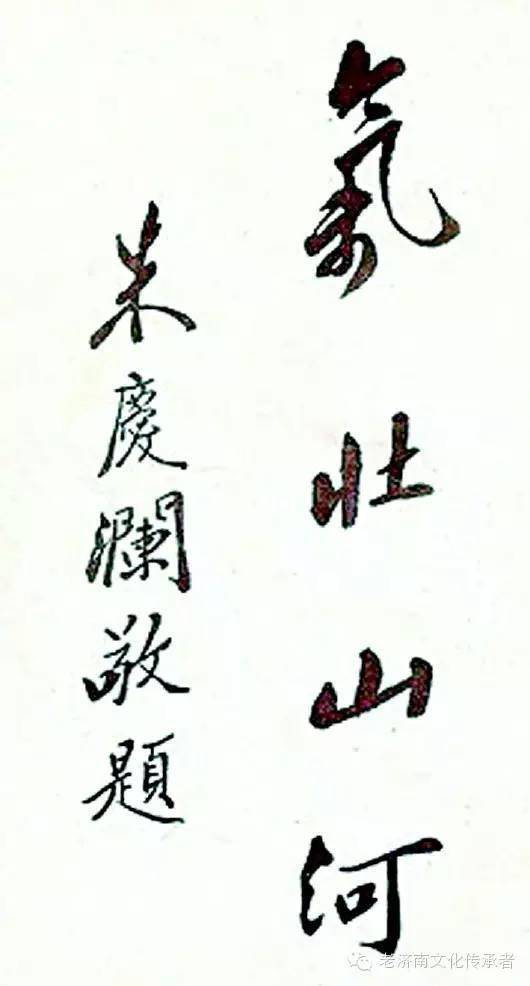 氣壯山河
朱慶瀾敬題
老济南文化传承者